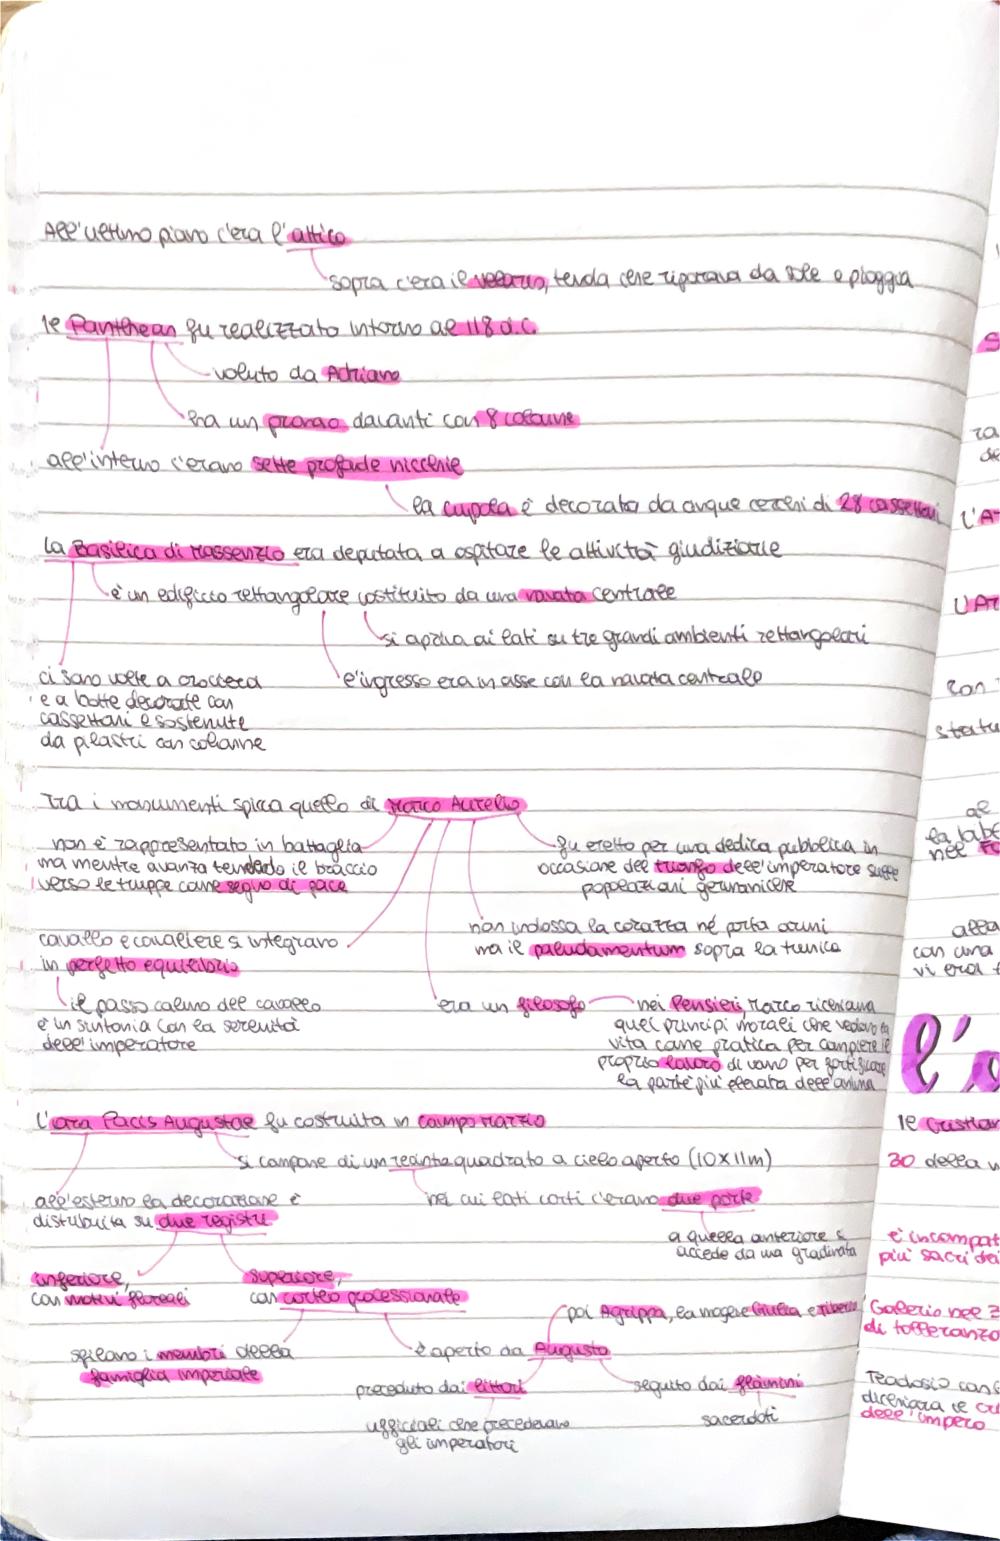 All'ultimo piano c'era l'attico
sopra c'era il velario, tenda che riparava da sole e pioggia
Il Pantheon fu realizzato intorno al 118 d.C.
voluto da Adriano
ha un pronao davanti con 8 colonne
all'interno c'erano sette profonde nicchie
la cupola è decorata da cinque cerchi di 28 cassettoni
La Basilica di Massenzio era deputata a ospitare le attività giudiziarie
è un edificio rettangolare costituito da una navata centrale
si apriva ai lati su tre grandi ambienti rettangolari
ci sono volte a crociera
l'ingresso era in asse con la navata centrale
e a botte decorate con
cassettoni e sostenute
da pilastri con colonne
Tra i monumenti spicca quello di Marco Aurelio
non è rappresentato in battaglia
ma mentre avanza tendendo il braccio
verso le truppe come segno di pace
fu eretto per una dedica pubblica in
occasione del trionfo dell'imperatore sulle
popolazioni germaniche
cavallo e cavaliere si integrano
in perfetto equilibrio
non indossa la corazza né porta armi
ma il paludamentum sopra la tunica
il passo calmo del cavallo
è in sintonia con la serenità
dell'imperatore
era un filosofo
nei Pensieri, Marco
quei principi morali che
vita come pratica per compiere il
proprio lavoro di uomo per fortificare
la parte più elevata dell'anima
L'ara Pacis Augustae fu costruita in Campo Marzio
si compone di un recinto quadrato a cielo aperto (10x11m)
all'esterno la decorazione è
distribuita su due registri
nei cui lati corti c'erano due porte
a quella anteriore si
accede da una gradinata
inferiore,
con motivi floreali
superiore,
con corteo processionale
sfilano i membri della
famiglia imperiale
è aperto da Augusto
poi Agrippa, la moglie Giulia e Tiberio
preceduto dai littori
ufficiali che precedevano
gli imperatori
seguito dai flamini
sacerdoti
S
ra
L'A
L'Ar
con
statu
al
nel
alla
con una
vi era
l'a
Il Cristian
30 della
è incompat
più sacri dei
Galerio nel 3
di tolleranza
Teodosio con
dichiara il cr
dell'impero